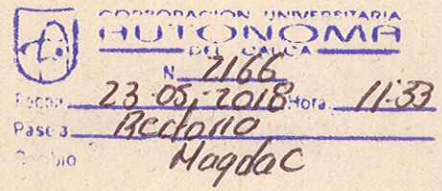 CORPORACION UNIVERSITARIA
AUTONOMA
DEL CAUCA
N. 7166
Fecha 23-05-2018 Hora 11:33
Pase a Rectoria
Recibio Magda C